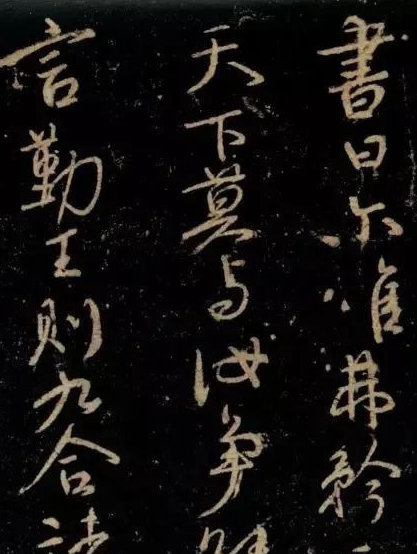 書曰尔唯弗矜
天下莫与汝争
言勤王则九合诸